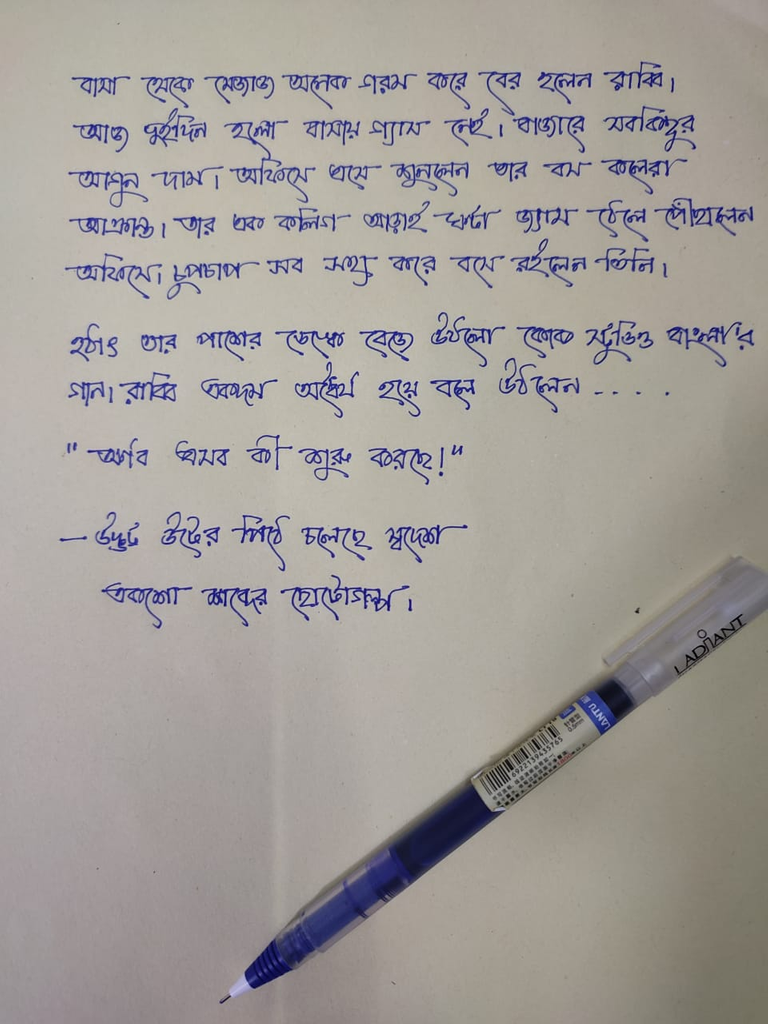 বাসা থেকে মেজাজ অনেক গরম করে বের হলেন রাব্বি।
আজ দুইদিন হলো বাসায় গ্যাস নেই। বাজারে সবকিছুর
আগুন দাম। অফিসে এসে শুনলেন তার বস কলেরা
আক্রান্ত। তার এক কলিগ আড়াই ঘন্টা জ্যাম ঠেলে পৌঁছালেন
অফিসে। চুপচাপ সব সহ্য করে বসে রইলেন তিনি।
হঠাৎ তার পাশের ডেস্কে বেজে উঠলো কোক স্টুডিও বাংলা'র
গান। রাব্বি একদম অধৈর্য হয়ে বলে উঠলেন ....
"অর্ণব এসব কী শুরু করছে!"
— উদ্ভট উটের পিঠে চলেছে স্বদেশ
একশো শব্দের ছোটোগল্প।
LADIANT
LANTU
0.5mm
6922139435765